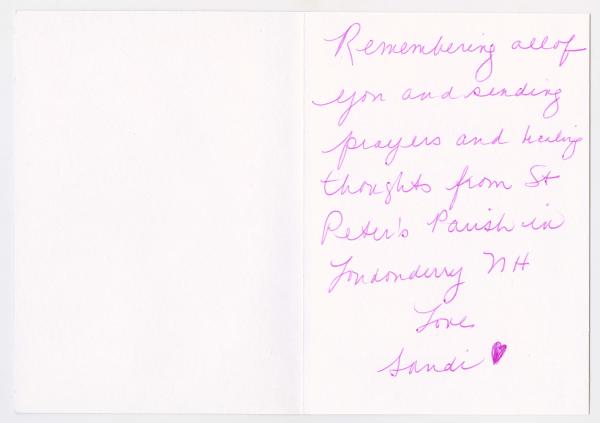 Remembering all of
you and sending
prayers and healing
thoughts from St
Peter's Parish in
Londonderry NH
Love
Sandi ♥